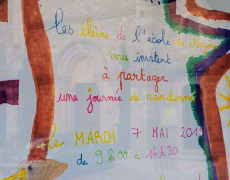 Les élèves de l'école de
vous invitent
à partager
une journée de randonnée
Le MARDI 7 MAI 201
de 9h00 à 16h30